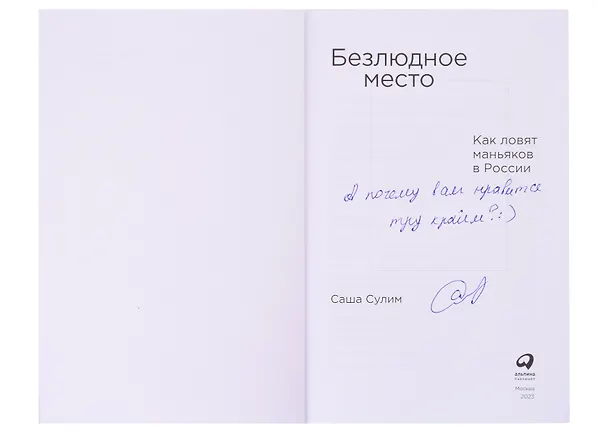 Безлюдное
место
Как ловят
маньяков
в России
А почему вам нравится
тру крайм?:)
Саша Сулим
альпина
паблишер
Москва
2023